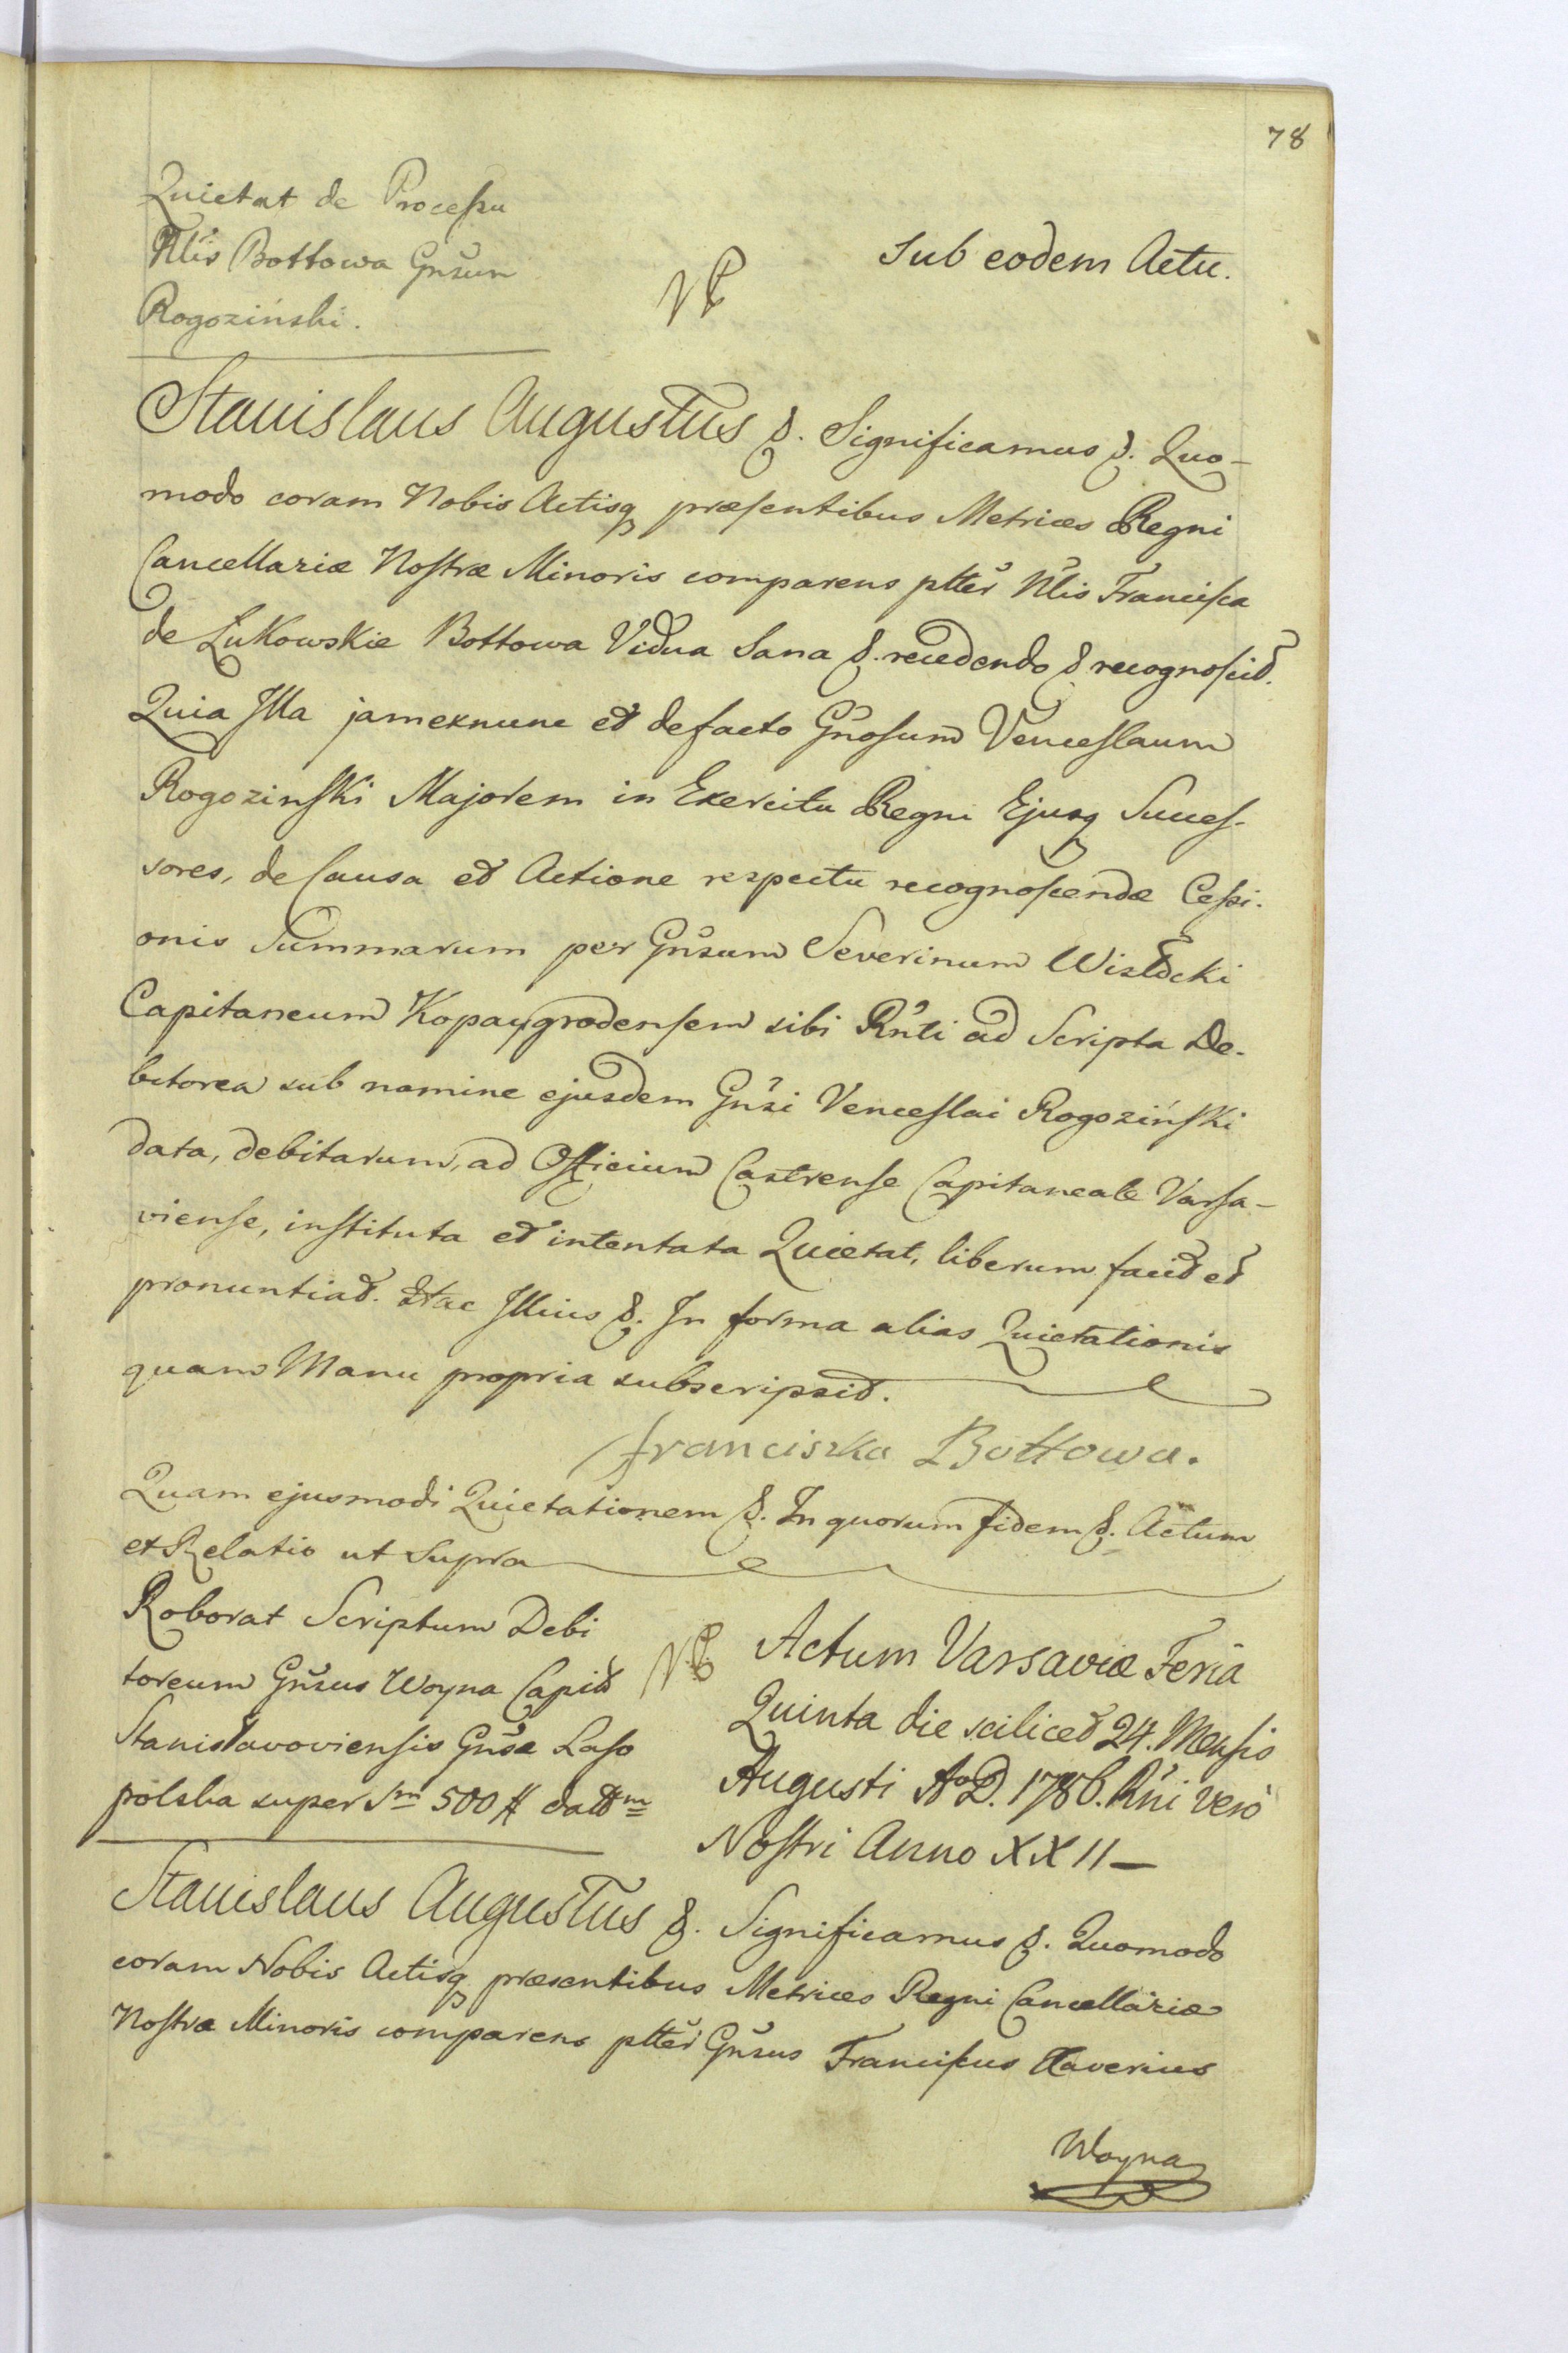 78
Quietat de Processu
Nlis Bottowa Gnsum
Rogoziński.
NB
Sub eodem Actu.
Stanislaus Augustus &. Significamus &. Quo-
modo coram Nobis Actisq præsentibus Metrices Regni
Cancellariæ Nostræ Minoris comparens ptter Nlis Francisca
de Łukowskie Bottowa Vidua Sana &. recedendo & recognoscit.
Quia Illa jamexnunc et defacto Gnosum Venceslaum
Rogozinski Majorem in Exercitu Regni Ejusq Succes-
sores, de Causa et Actione respectu recognoscendæ Cessi-
onis Summarum per Gnsum Severinum Wisłocki
Capitaneum Kopaygrodensem sibi Rnti ad Scripta De-
bitorea sub nomine ejusdem Gnsi Venceslai Rogoziński
data, debitarum, ad Officium Castrense Capitaneale Varsa-
viense, instituta et intentata Quietat, liberum facit et
pronuntiat. Hac Illius &. In forma alias Quietationis
quam Manu propria subscripsit.
franciszka Bottowa.
Quam ejusmodi Quietationem &. In quorum fidem &. Actum
et Relatio ut Supra
Roborat Scriptum Debi
toreum Gnsus Woyna Capit
Stanisławoviensis Gnsæ Laso
polska super Sm 500 # dattm
NB
Actum Varsaviæ Feriâ
Quinta die scilicet 24. Mensis
Augusti Ao D. 1786. Rni verò
Nostri Anno XXII—
Stanislaus Augustus &. Significamus &. Quomodo
coram Nobis Actisq præsentibus Metrices Regni Cancellariæ
Nostræ Minoris comparens ptter Gnsus Franciscus Xaverius
Woyna